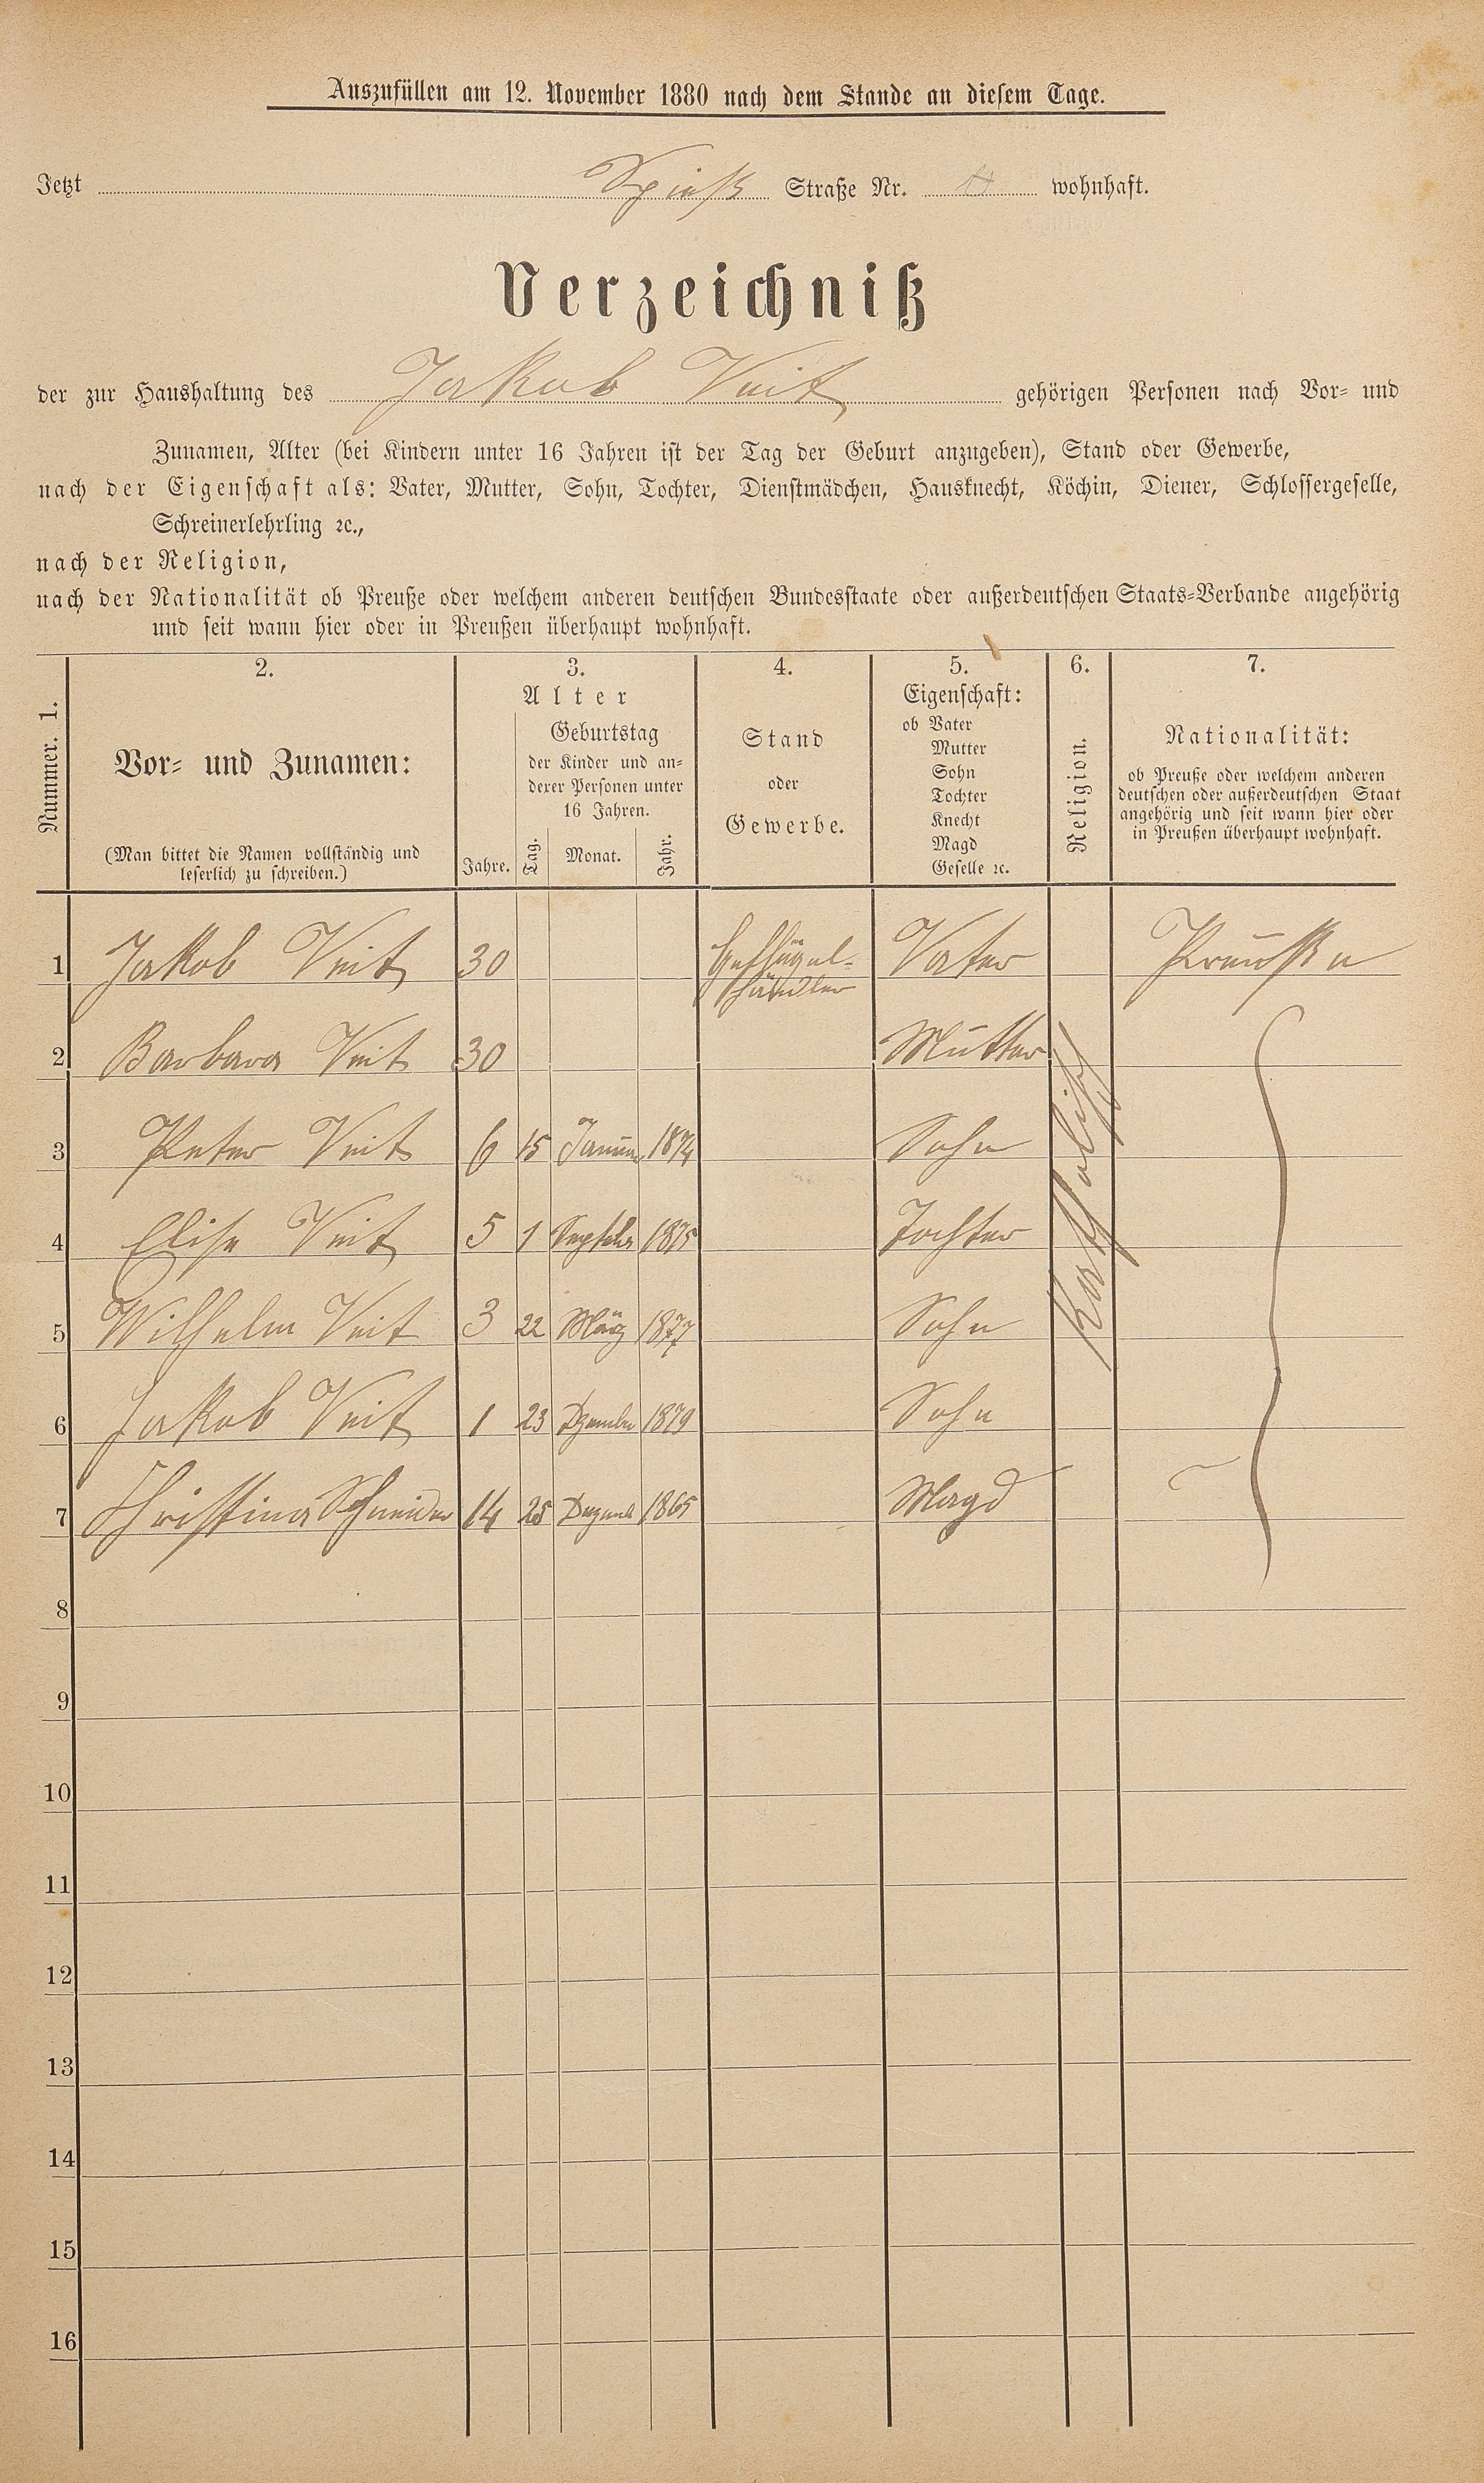 Auszufüllen am 12. November 1880 nach dem Stande an diesem Tage.
Jetzt Spieß Straße Nr. wohnhaft.
Verzeichniß
der zur Haushaltung des Jakob Veit gehörigen Personen nach Vor- und
Zunamen, Alter (bei Kindern unter 16 Jahren ist der Tag der Geburt anzugeben), Stand oder Gewerbe,
nach der Eigenschaft als: Vater, Mutter, Sohn, Tochter, Dienstmädchen, Hausknecht, Köchin, Diener, Schlossergeselle,
Schreinerlehrling ꝛc.,
nach der Religion,
nach der Nationalität ob Preuße oder welchem anderen deutschen Bundesstaate oder außerdeutschen Staats-Verbande angehörig
und seit wann hier oder in Preußen überhaupt wohnhaft.
Nummer. 1.
2.
Vor- und Zunamen:
(Man bittet die Namen vollständig und
leserlich zu schreiben.)
3.
Alter
Jahre.
Geburtstag
der Kinder und an-
derer Personen unter
16 Jahren.
Tag. Monat. Jahr.
4.
Stand
oder
Gewerbe.
5.
Eigenschaft:
ob Vater
Mutter
Sohn
Tochter
Knecht
Magd
Geselle ꝛc.
6.
Religion.
7.
Nationalität:
ob Preuße oder welchem anderen
deutschen oder außerdeutschen Staat
angehörig und seit wann hier oder
in Preußen überhaupt wohnhaft.
1 Jakob Veit 30 Geflügel- Vater Preuße
händler
2 Barbara Veit 30 Mutter
Katholisch
3 Peter Veit 6 15 Januar 1874 Sohn
4 Elise Veit 5 1 Septbr 1875 Tochter
5 Wilhelm Veit 3 22 März 1877 Sohn
6 Jakob Veit 1 23 Dezember 1879 Sohn
7 Christina Schneider 14 25 Dezemb 1865 Magd
8
9
10
11
12
13
14
15
16